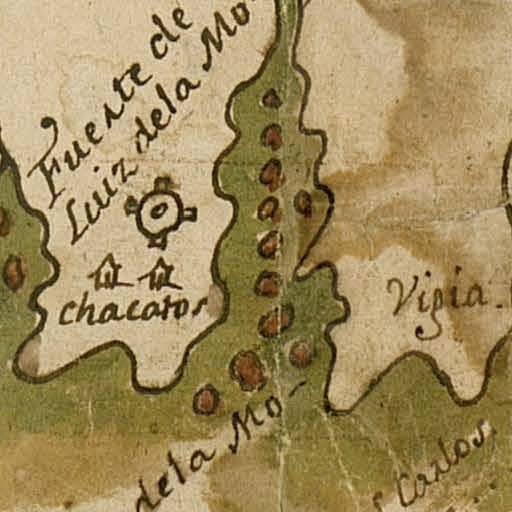 Fuente de
Luiz dela Mo
chacatos
Vigia.
dela Mo-
Carlos